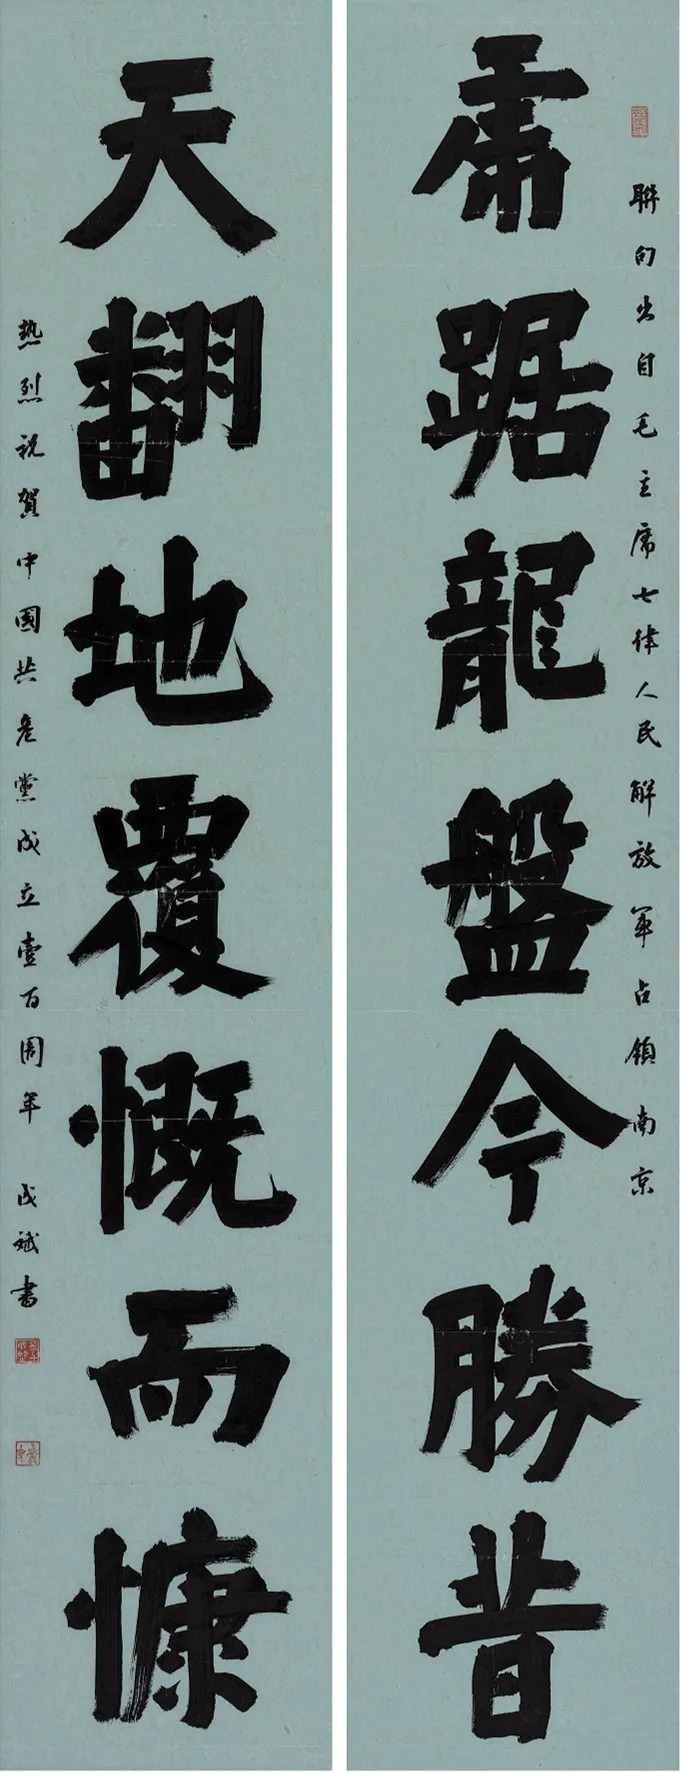 聯句出自毛主席七律人民解放軍占領南京
虎踞龍盤今勝昔
天翻地覆慨而慷
热烈祝賀中國共產黨成立壹百周年 成斌書